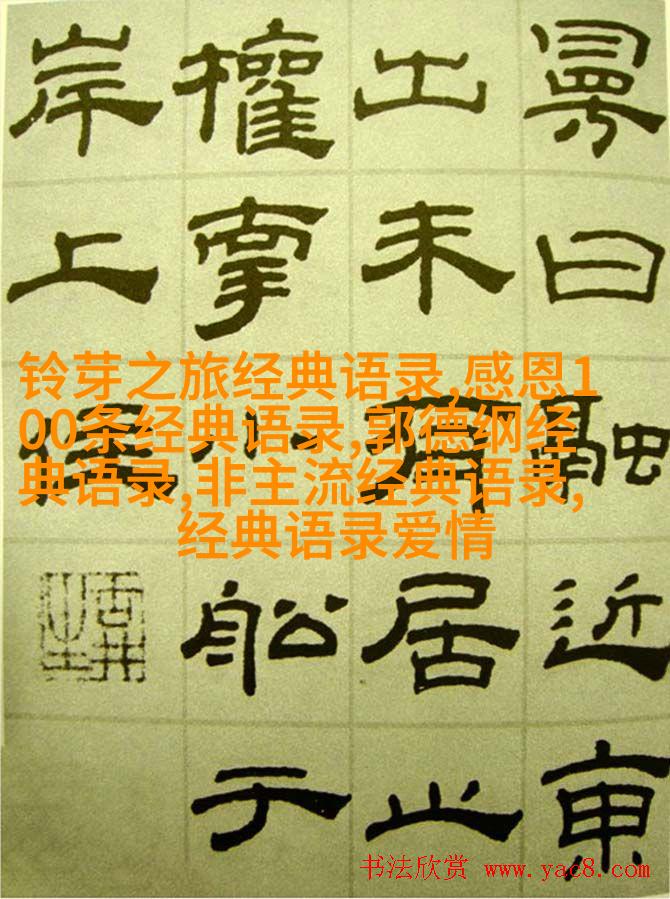 曰融近東
出未有居止
權牽小船于
岸上
铃芽之旅经典语录,感恩1
00条经典语录,郭德纲经
典语录,非主流经典语录,
经典语录爱情
书法欣赏 www.yac8.com